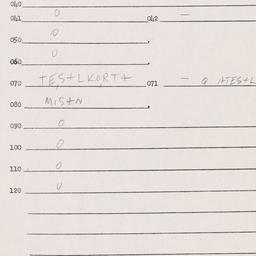 040
041 0 042 —
050 0
060 U
070 TESTLKORT 071 —
080 MISTN
090 0
100 0
110 0
120 U